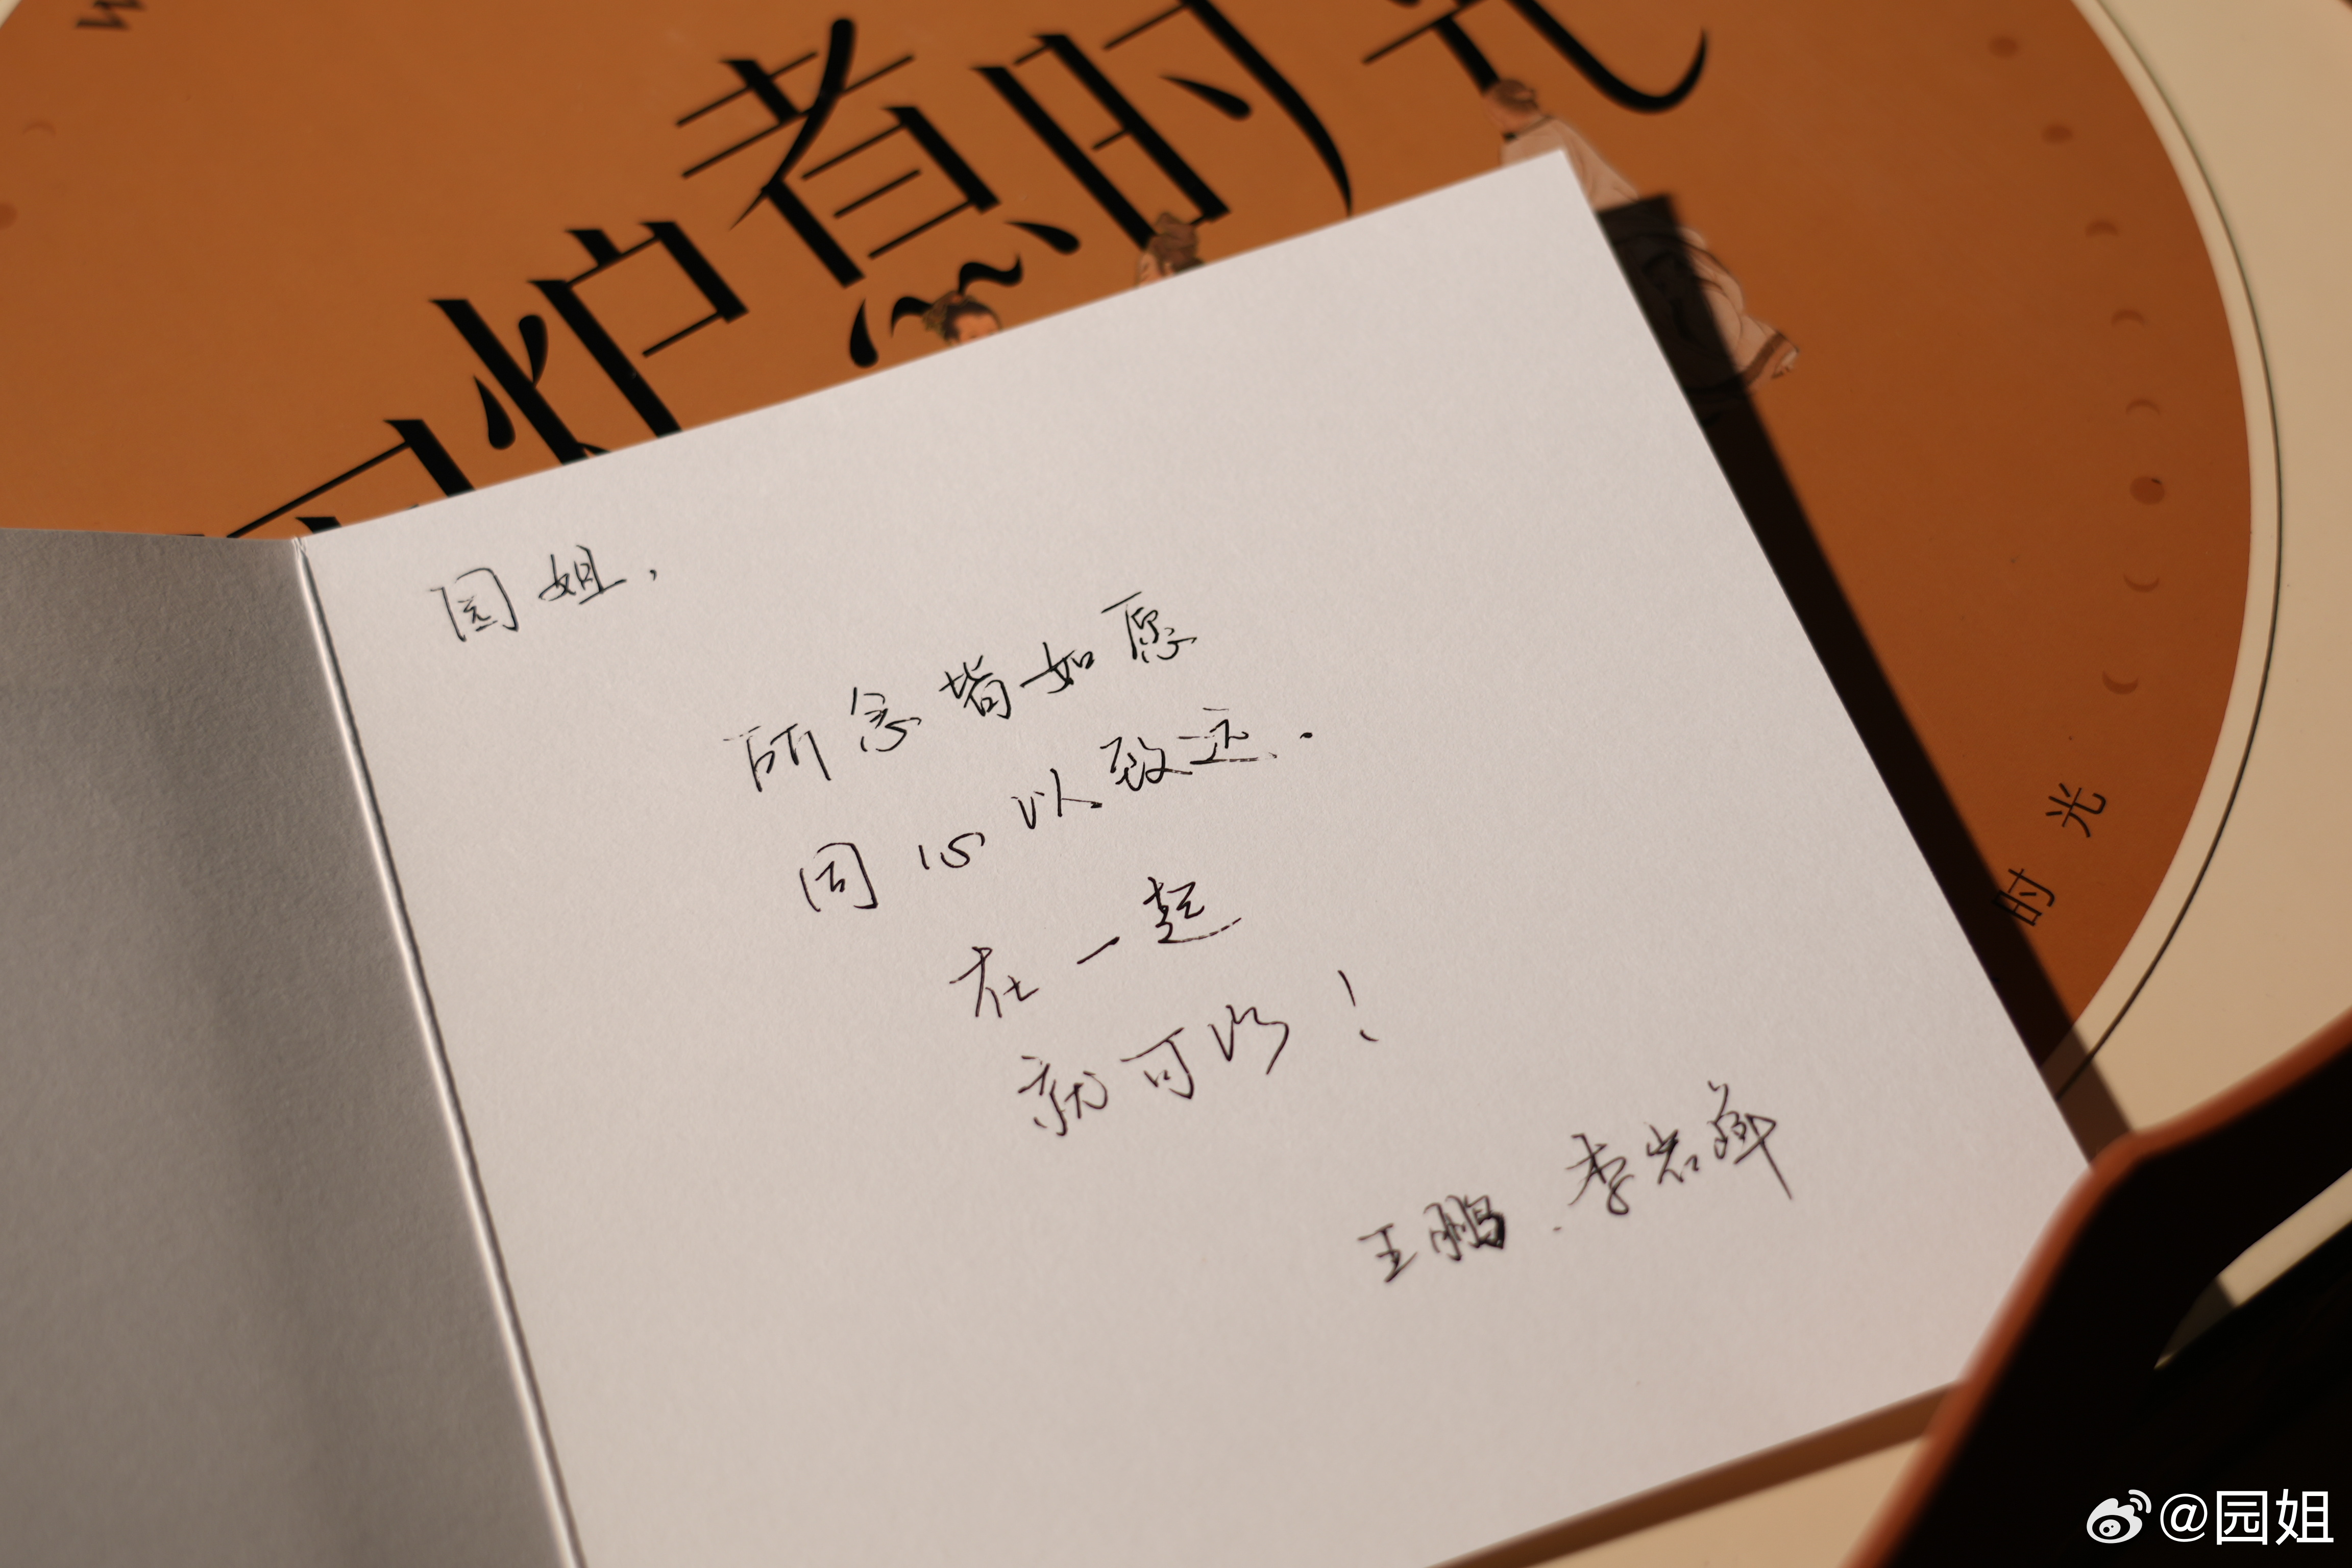 炉煮时光
园姐，
所念皆如愿
同心以致远.
在一起
就可以！
王鹏.李岩
时光
@园姐